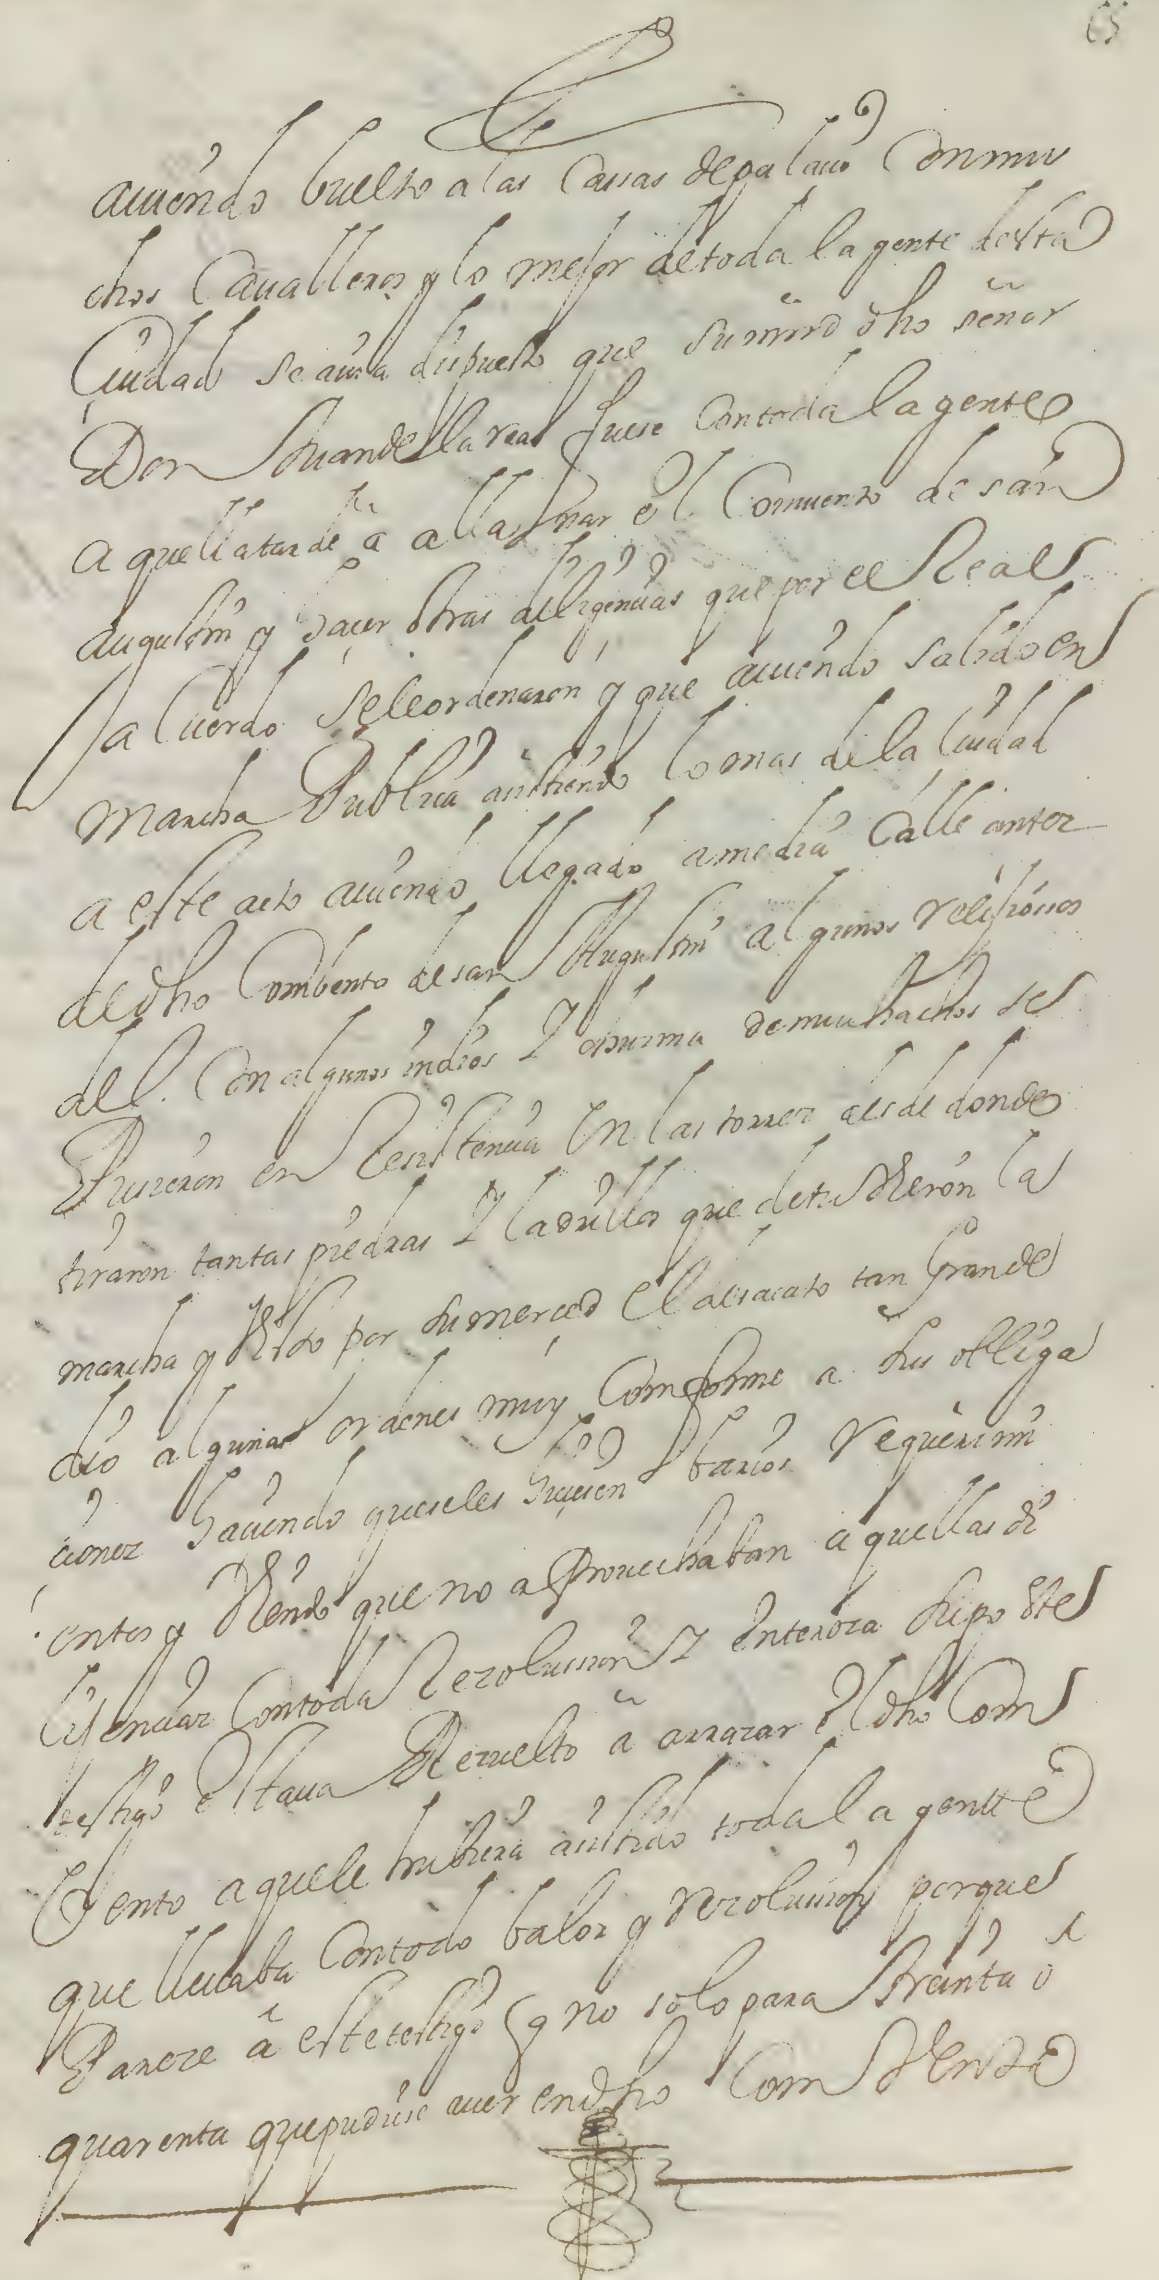 65
auiendo buelto a las Cassas de palaçio Con mu
chos Caualleros y lo mejor de toda la gente desta
Ciudad se auia dispuesto que su mrd dho señor
Don Juan de la rea fuese Con toda la gente
aquella tarde â allanar el Conuento de san
Augustin y hacer otras diligencias que por el Real
aCuerdo se le ordenaron y que auiendo salido en
marcha Publica asistiendo lo mas de la Ciudad
a este acto auiendo llegado a media Calle antez
de dho Combento de san Augustin algunos religiosos
del. Con algunos indios Y chusma de muchachos se
Pusieron en Resistencia En las torrez desde donde
tiraron tantas piedras Y ladrillos que detubieron la
marcha y Visto por su merced El desacato tan Grande
dio algunas ordenes muy Comforme a sus obliga
cionez haciendo que se les hiciesen barios requerimi
entos y Viendo que no aProuechaban aquellas di
ligenciaz Con toda Rezolucion Y Entereza supo este
testigo estaua Rezuelto â arrazar el dho Com
Vento a que le hubiera asistido toda la gentte
que lleuaba Con todo balor y rezoluzion porque
Pareze â este testigo q no solo para treinta o
quarenta que pudiese auer en dho Comvento